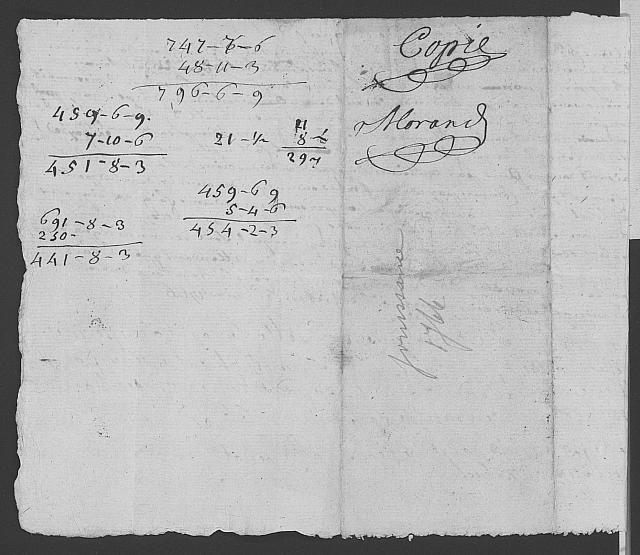 747-7-6
48-11-3
796-6-9
459-6-9.
7-10-6
451-8-3
21-½
297
459-6 9
5-4-6
454-2-3
691-8-3
250-
441-8-3
Copie
Morand
jouissance
1766